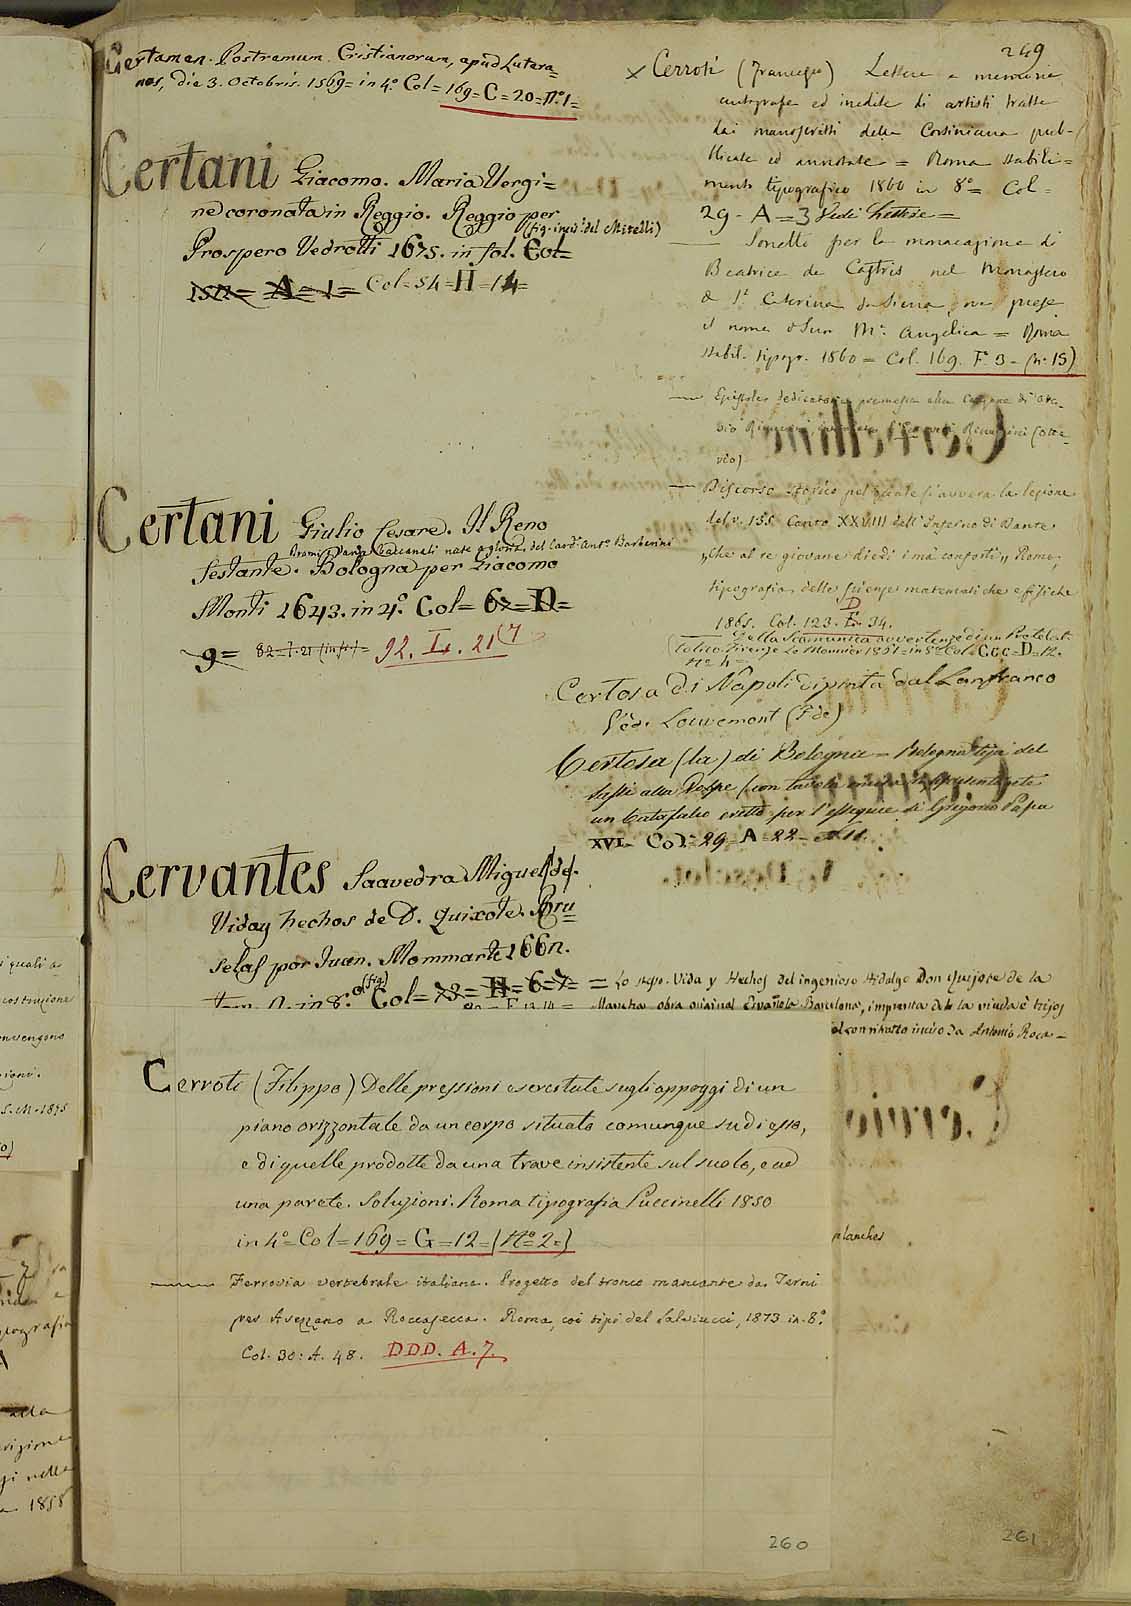 249
Certamen Postremum Cristianorum, apud Lutera-
nos, die 3. Octobris. 1569= in 4.º Col= 169= C= 20= Nº.1=
Certani Giacomo. Maria Vergi=
ne coronata in Reggio. Reggio per
(fig. incis. del Mitelli)
Prospero Vedrotti 1675. in fol. Col=
A= 1= Col= 54= H= 14=
Certani Giulio Cesare. Il Reno
nate a gloria del Card. Antº. Barberini
festante. Bologna per Giacomo
Monti 1643. in 4º. Col= 67= D=
9= 82= I. 21 92. I. 21 (7
Cervantes Saavedra Miguel de.
Vida y hechos de D. Quixote. Bru
selas por Juan. Mommarte 166
in 8.º (fig) Col= 73= H= 6=7=
= Lo stesso. Vida y Hechos del ingenioso Hidalgo Don Quijote de la
Mancha obra original Española Barcelona, imprenta de la viuda é hijos
con ritratto inciso da Antonio Roca=
× Cerroti (Francesco) Lettere e memorie
autografe ed inedite di artisti tratte
dai manoscritti della Corsiniana pub-
blicate ed annotate = Roma stabili=
mento tipografico 1860 in 8º= Col=
29- A= 3 Vedi Lettere=
— Sonetto per la monacazione di
Beatrice de Castris nel Monastero
di Sª. Caterina da Siena, ove prese
il nome di Suor Mª. Angelica = Roma
Stabil. tipogr. 1860= Col. 169. F. 3- (Nº 15)
— Epistola dedicatoria premessa alla
(Otta-
vio)
— Discorso storico pel quale si avvera la lezione
del v. 135 Canto XXVIII dell'Inferno di Dante
"che al re giovane diedi i ma' conforti" Roma,
tipografia delle scienze matematiche e fisiche
D
1865. Col. 123. E. 34.
— Della Scomunica avvertenze di un Prete Cat
tolico. Firenze Le Monnier 1861= in 8º Col. CCC= D= 12.
Nº 4=
Certosa di Napoli dipinta dal Lanfranco
Ved. Louvemont (F. de)
Certosa (la) di Bologna = Bologna tipi del
Sassi alla Volpe (con tavola incisa rappresentante
un Catafalco eretto per l'esequie di Gregorio Papa
XVI- Col: 29- A= 22-
Cerroti (Filippo) Delle pressioni esercitate sugli appoggi di un
piano orizzontale da un corpo situato comunque su di esso,
e di quelle prodotte da una trave insistente sul suolo, e ad
una parete. Soluzioni. Roma tipografia Puccinelli 1850
in 4º= Col= 169= G= 12= (Nº= 2=)
— Ferrovia vertebrale italiana. Progetto del tronco mancante da Terni
per Avezzano a Roccasecca. Roma, coi tipi del Salviucci, 1873 in 8º
Col. 30: A. 48. DDD. A. 7.
planches
260
261